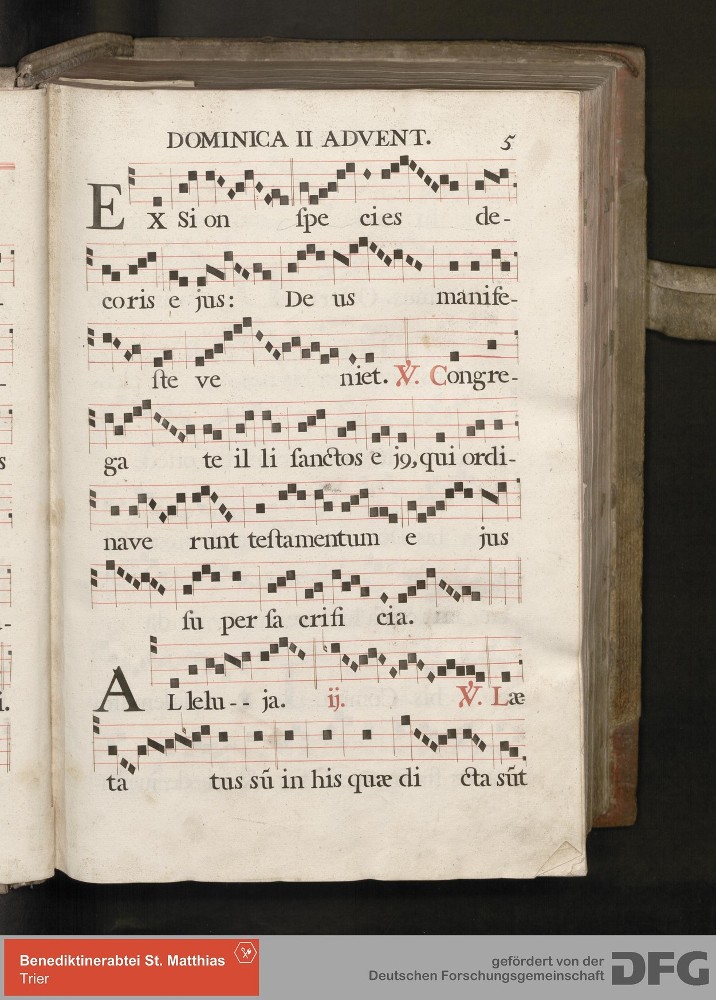 DOMINICA II ADVENT. 5
EX Si on ſpe ci es de-
coris e jus: De us manife-
ſte ve niet. ℣. Congre-
ga te il li ſanctos e jꝰ, qui ordi-
nave runt teſtamentum e jus
ſu per ſa crifi cia.
ALlelu-- ja. ij. ℣. Læ
ta tus sũ in his quæ di cta sũt
Benediktinerabtei St. Matthias
Trier
gefördert von der
Deutschen Forschungsgemeinschaft
DFG